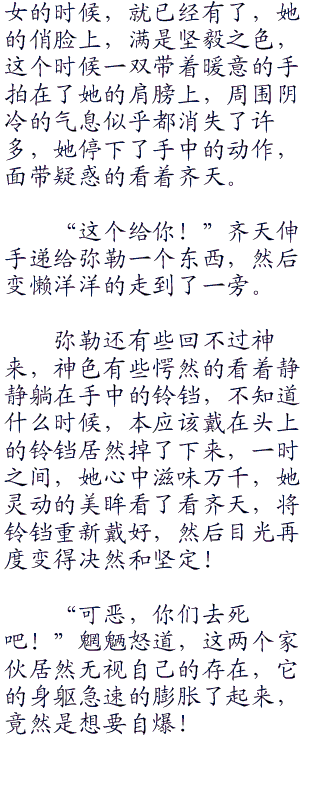 女的时候，就已经有了，她
的俏脸上，满是坚毅之色，
这个时候一双带着暖意的手
拍在了她的肩膀上，周围阴
冷的气息似乎都消失了许
多，她停下了手中的动作，
面带疑惑的看着齐天。
“这个给你！”齐天伸
手递给弥勒一个东西，然后
变懒洋洋的走到了一旁。
弥勒还有些回不过神
来，神色有些愕然的看着静
静躺在手中的铃铛，不知道
什么时候，本应该戴在头上
的铃铛居然掉了下来，一时
之间，她心中滋味万千，她
灵动的美眸看了看齐天，将
铃铛重新戴好，然后目光再
度变得决然和坚定！
“可恶，你们去死
吧！”魍魉怒道，这两个家
伙居然无视自己的存在，它
的身躯急速的膨胀了起来，
竟然是想要自爆！